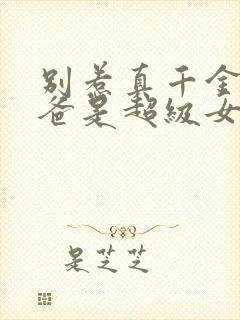 别惹真千金
爸是超级女
是芝芝